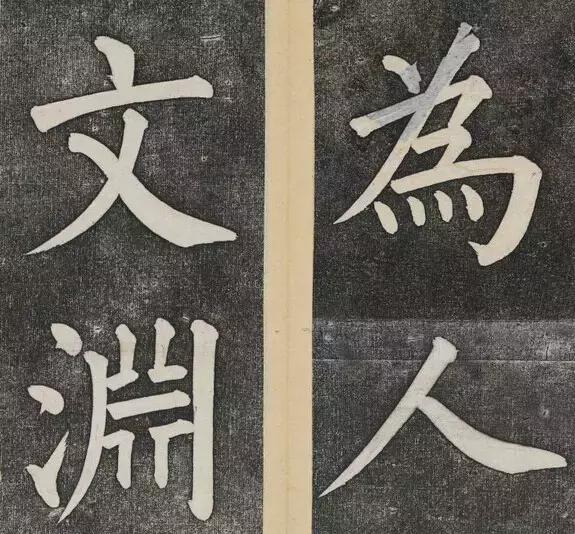 為人
文淵